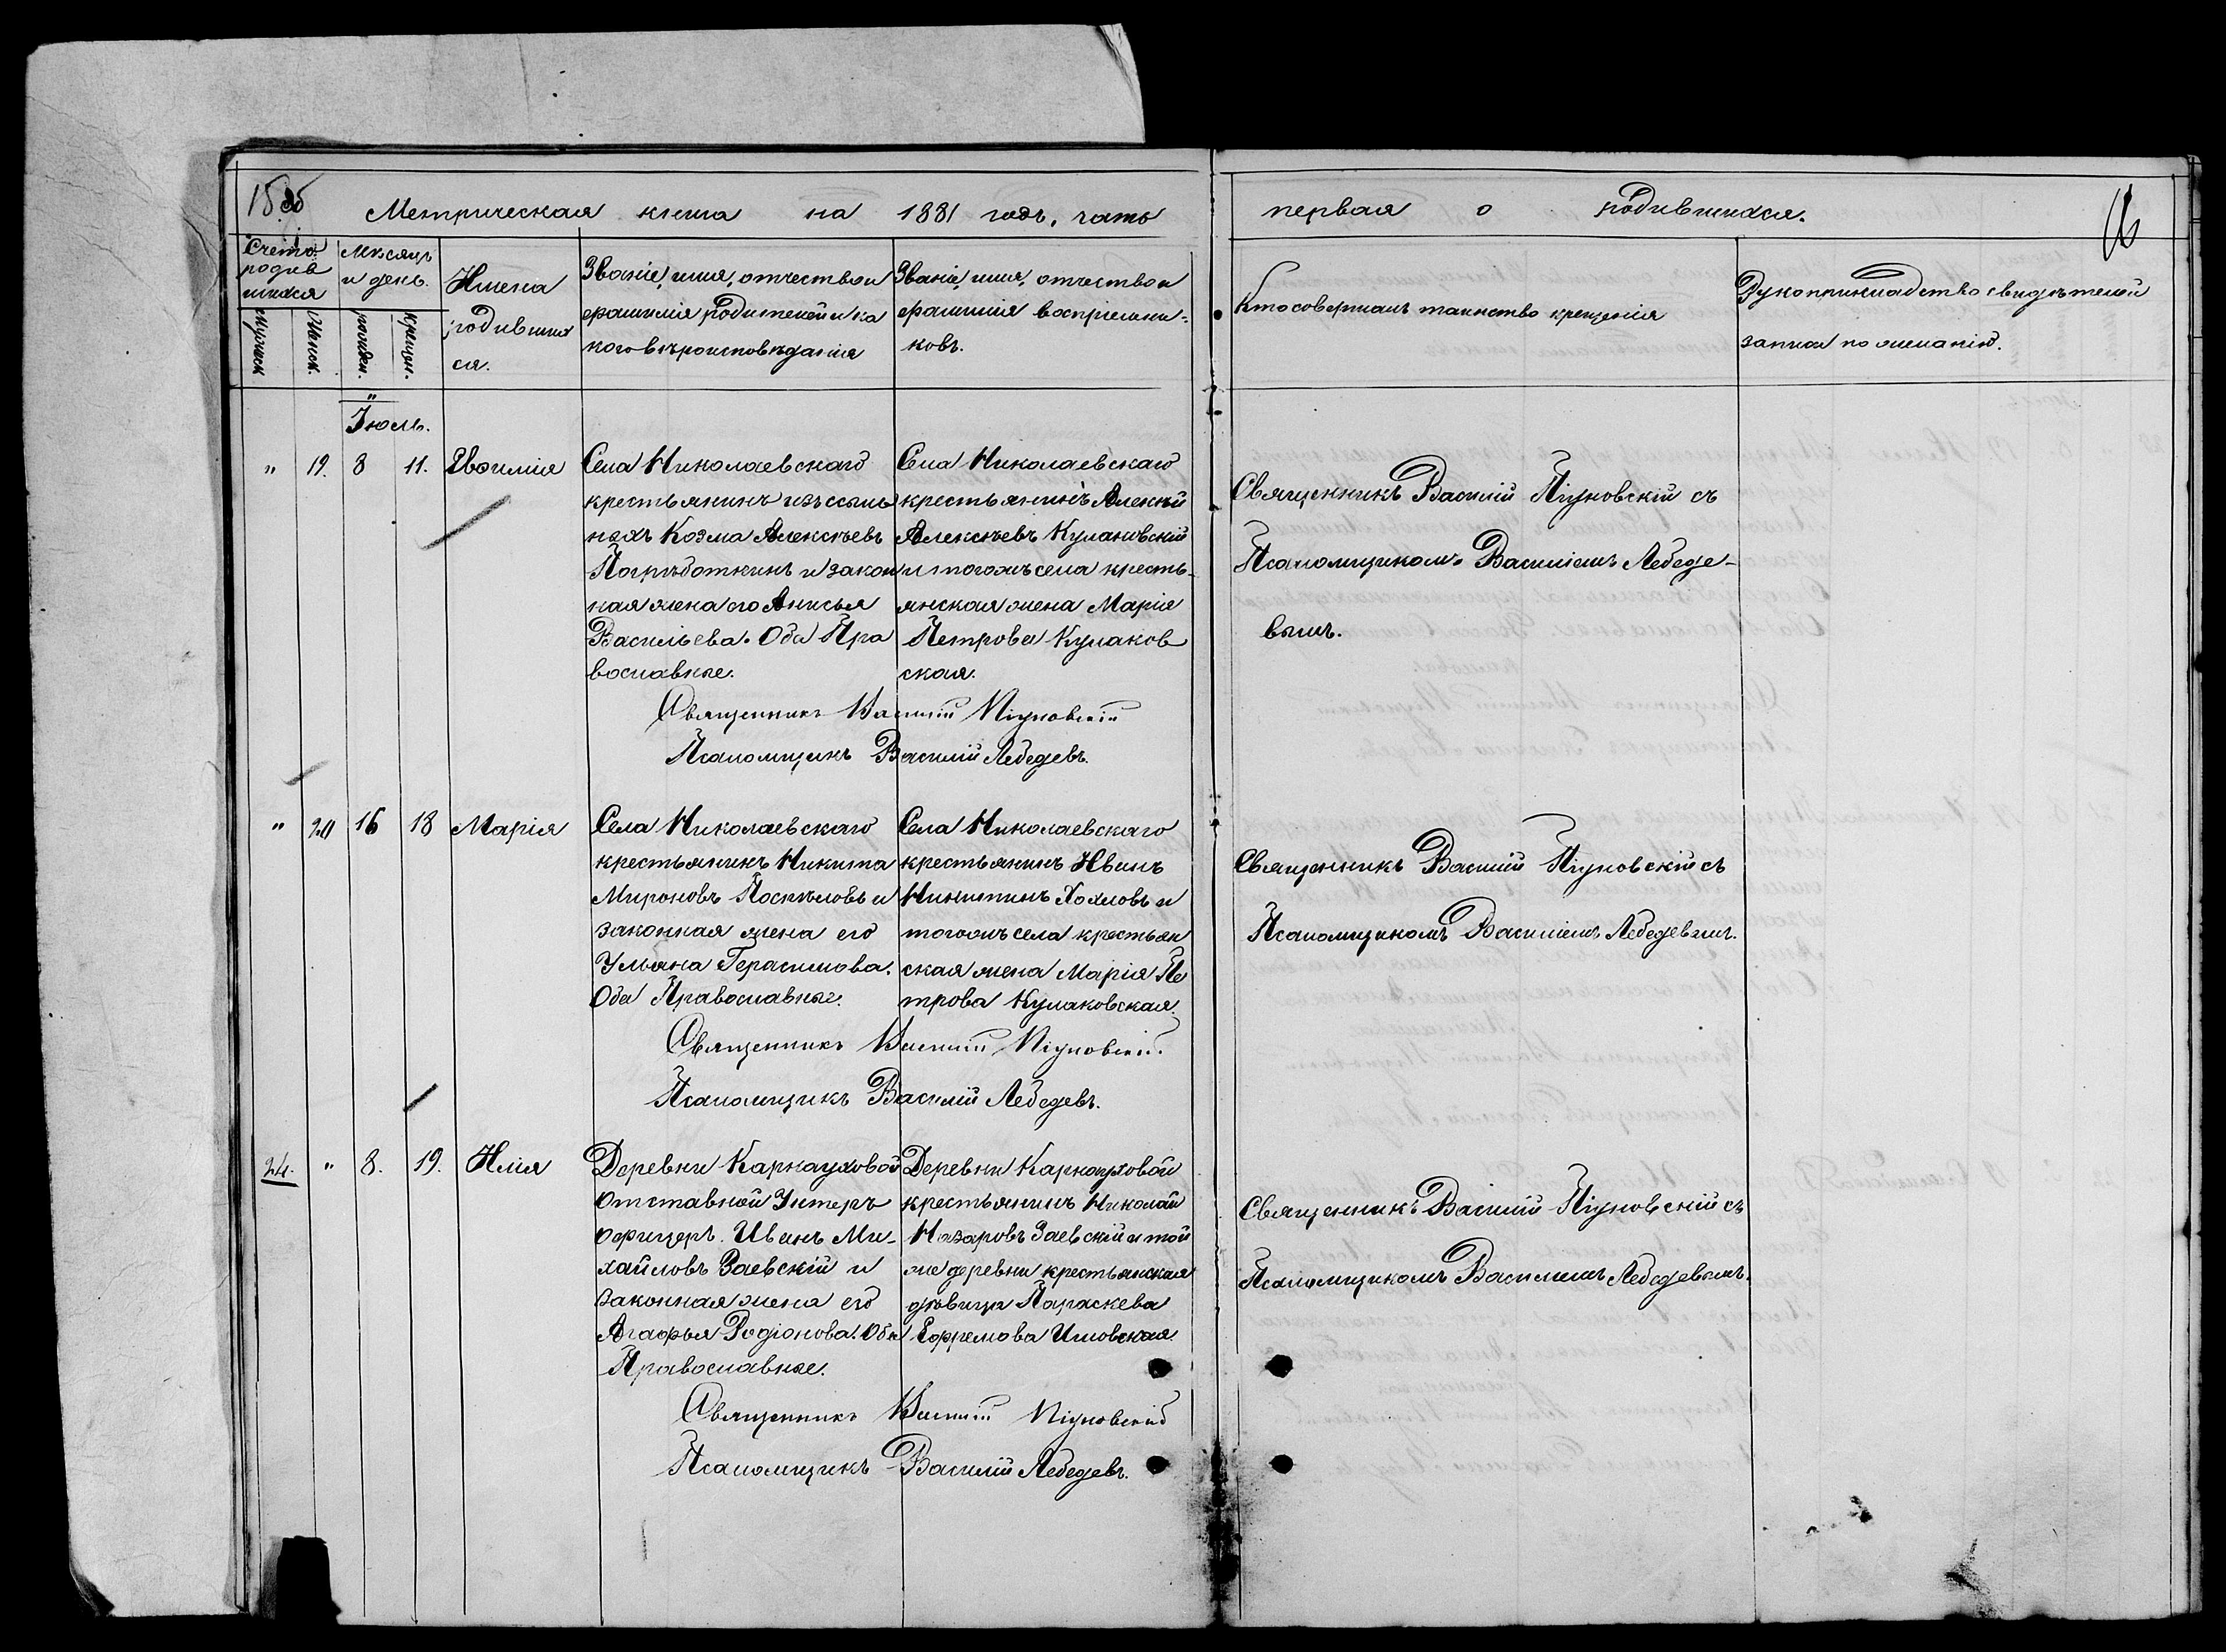 Метрическая книга на 1881 годъ, часть
первая о родившихся.
16
Счетъ
родив
шихся
Мѣсяцъ
и день.
Имена
родивших
ся.
Званіе, имя, отчество и
фамилія родителей и ка
кого вѣроисповѣданія
Званіе, имя, отчество и
фамилія воспріемни-
ковъ.
Кто совершалъ таинство крещенія
Рукоприкладство свидѣтелей
записи по желанію.
мужеск
женск.
рожден.
крещен.
Іюль.
" 19. 8 11. Евфимія
Села Николаевскаго
крестьянинъ изъ ссыль
ныхъ Козма Алексѣевъ
и закон
ная жена его Анисья
Васильева. Оба Пра
вославные.
Села Николаевскаго
крестьянинъ Алексѣй
Алексѣевъ Кулаковскій
и тогожъ села кресть-
янская жена Марія
Петрова Кулаков
ская.
Священникъ Василій Піуновскій съ
Псаломщикомъ Василіемъ Лебеде-
вымъ.
Священникъ Василій Піуновскій
Псаломщикъ Василій Лебедевъ.
" 20 16 18 Марія
Села Николаевскаго
крестьянинъ Никита
Мироновъ Поспѣловъ и
законная жена его
Ульяна Герасимова.
Оба Православные.
Села Николаевскаго
крестьянинъ Иванъ
Никитинъ Хохловъ и
тогожъ села крестьян
ская жена Марія Пе
трова Кулаковская.
Священникъ Василій Піуновскій съ
Псаломщикомъ Василіемъ Лебедевымъ.
Священникъ Василій Піуновскій
Псаломщикъ Василій Лебедевъ.
24. " 8. 19. Илія
Деревни Карнауховой
Отставной Унтеръ
офицеръ Иванъ Ми-
хайловъ Заевскій и
законная жена его
Агафья Родіонова. Оба
Православные.
Деревни Карнауховой
крестьянинъ Николай
Назаровъ Заевскій и той
же деревни крестьянская
дѣвица Параскева
Ефремова
Священникъ Василій Піуновскій съ
Псаломщикомъ Василіемъ Лебедевымъ.
Священникъ Василій Піуновскій
Псаломщикъ Василій Лебедевъ.